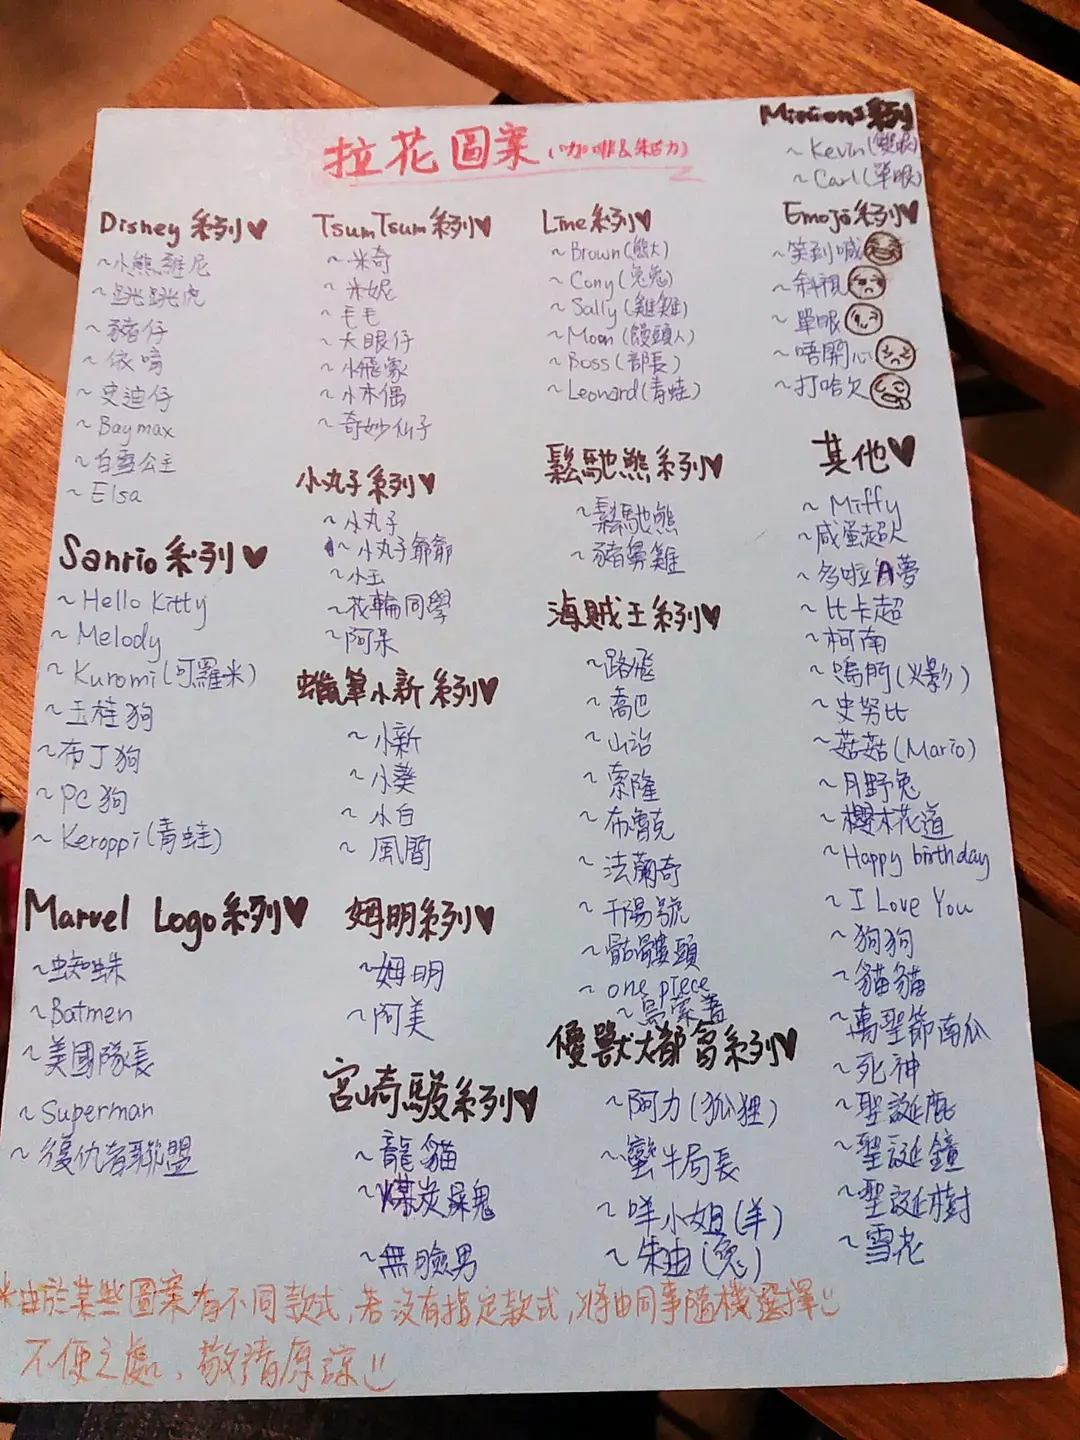 拉花圖案(咖啡&朱古力)
Disney 系列♥
~小熊維尼
~跳跳虎
~豬仔
~依唷
~史迪仔
~Baymax
~白雪公主
~Elsa
Sanrio 系列♥
~Hello Kitty
~Melody
~Kuromi(可羅米)
~玉桂狗
~布丁狗
~PC狗
~Keroppi(青蛙)
Marvel Logo系列♥
~蜘蛛
~Batmen
~美國隊長
~Superman
~復仇者聯盟
TsumTsum系列♥
~米奇
~米妮
~毛毛
~大眼仔
~小飛象
~小木偶
~奇妙仙子
小丸子系列♥
~小丸子
~小丸子爺爺
~小玉
~花輪同學
~阿呆
蠟筆小新系列♥
~小新
~小葵
~小白
~風間
姆明系列♥
~姆明
~阿美
宮崎駿系列♥
~龍貓
~煤炭屎鬼
~無臉男
Line系列♥
~Brown(熊大)
~Cony(兔兔)
~Sally(雞雞)
~Moon(饅頭人)
~Boss(部長)
~Leonard(青蛙)
鬆馳熊系列♥
~鬆馳熊
~豬鼻雞
海賊王系列♥
~路飛
~喬巴
~山治
~索隆
~布魯克
~法蘭奇
~千陽號
~骷髏頭
~one piece
~鳥蒙蓋
優獸大都會系列♥
~阿力(狐狸)
~蠻牛局長
~咩小姐(羊)
~朱迪(兔)
Minions系列
~Kevin(雙眼)
~Carl(單眼)
Emoji系列♥
~笑到喊
~斜視
~單眼
~唔開心
~打哈欠
其他♥
~Miffy
~咸蛋超人
~多啦A夢
~比卡超
~柯南
~鳴門(火影)
~史努比
~菇菇(Mario)
~月野兔
~櫻木花道
~Happy birthday
~I Love You
~狗狗
~貓貓
~萬聖節南瓜
~死神
~聖誕鹿
~聖誕鐘
~聖誕樹
~雪花
*由於某些圖案有不同款式,若沒有指定款式,將由同事隨機選擇
不便之處,敬請原諒